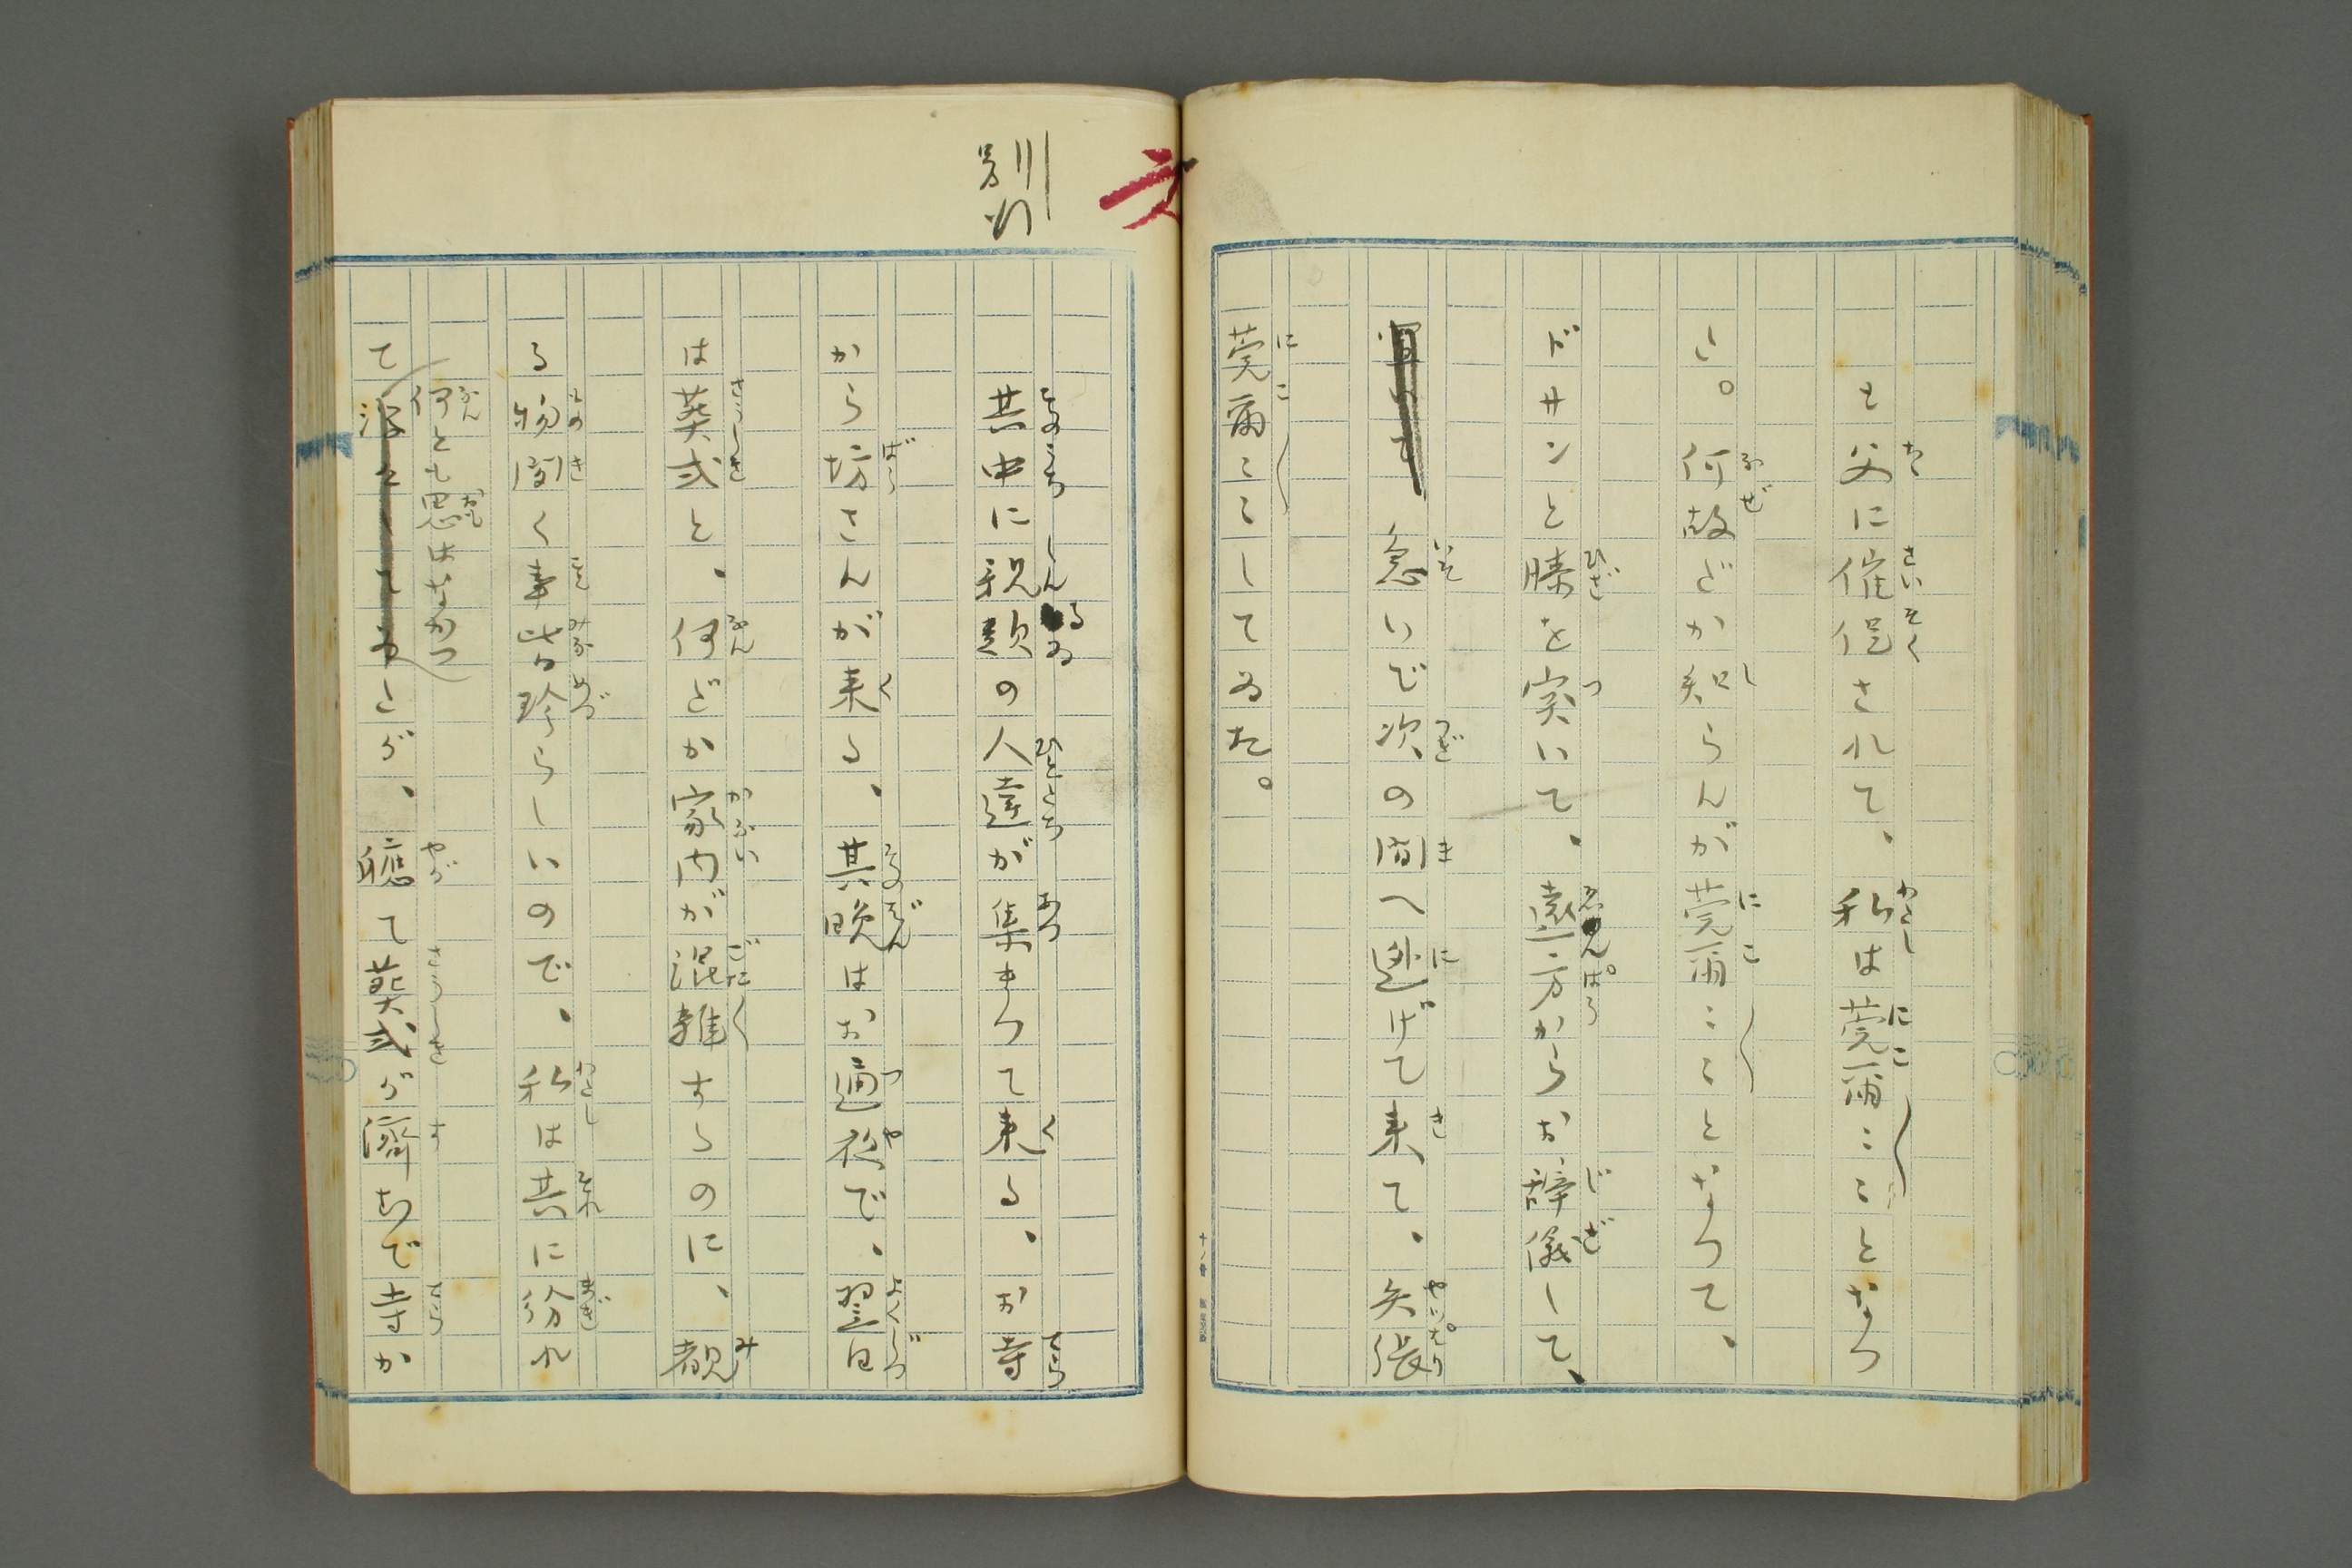 と父に催促されて、私は莞爾々々となつ
た。何故だか知らんが莞爾々々となつて、
ドサンと膝を突いて、遠方からお辞儀して、
急いで次の間へ逃げて来て、矢張
莞爾々々してゐた。
別行
其中に親類の人達が集まつて来る、お寺
から坊さんが来る、其晩はお通夜で、翌日
は葬式と、何だか家内が混雑するのに、覩
る物聞く事皆珍らしいので、私は其に紛れ
て何とも思はなかつたが、軈て葬式が済んで寺か